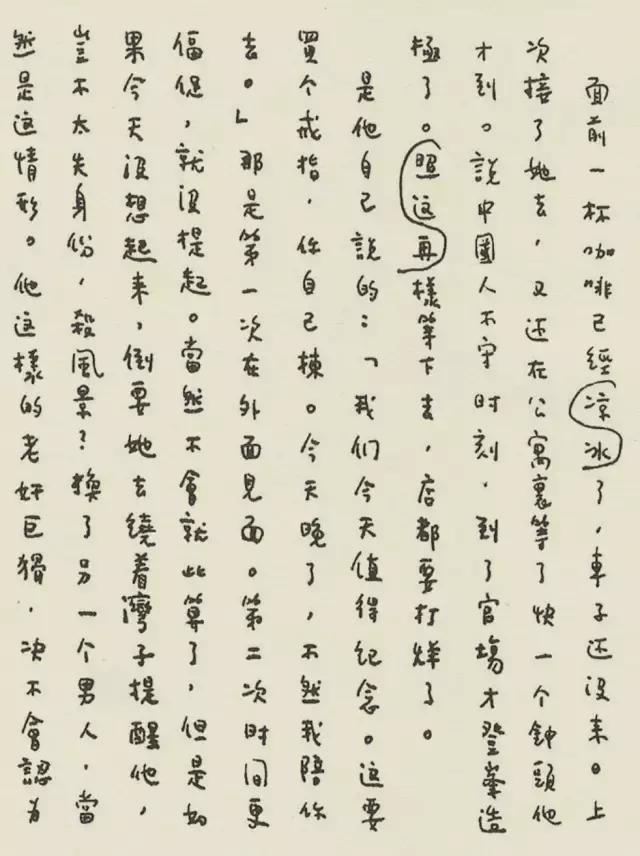 面前一杯咖啡已經凉冰了，車子还没来。上
次接了她去，又还在公寓裏等了快一个鐘頭他
才到。說中國人不守时刻，到了官場才登峯造
極了。照这再樣等下去，店都要打烊了。
是他自己說的：「我们今天值得纪念。这要
買个戒指，你自己楝。今天晚了，不然我陪你
去。」那是第一次在外面見面。第二次时间更
偪促，就没提起。當然不會就此算了，但是如
果今天没想起来，倒要她去繞着灣子提醒他，
豈不太失身份，殺風景？換了另一个男人，當
然是这情形。他这樣的老奸巨猾，决不會認为